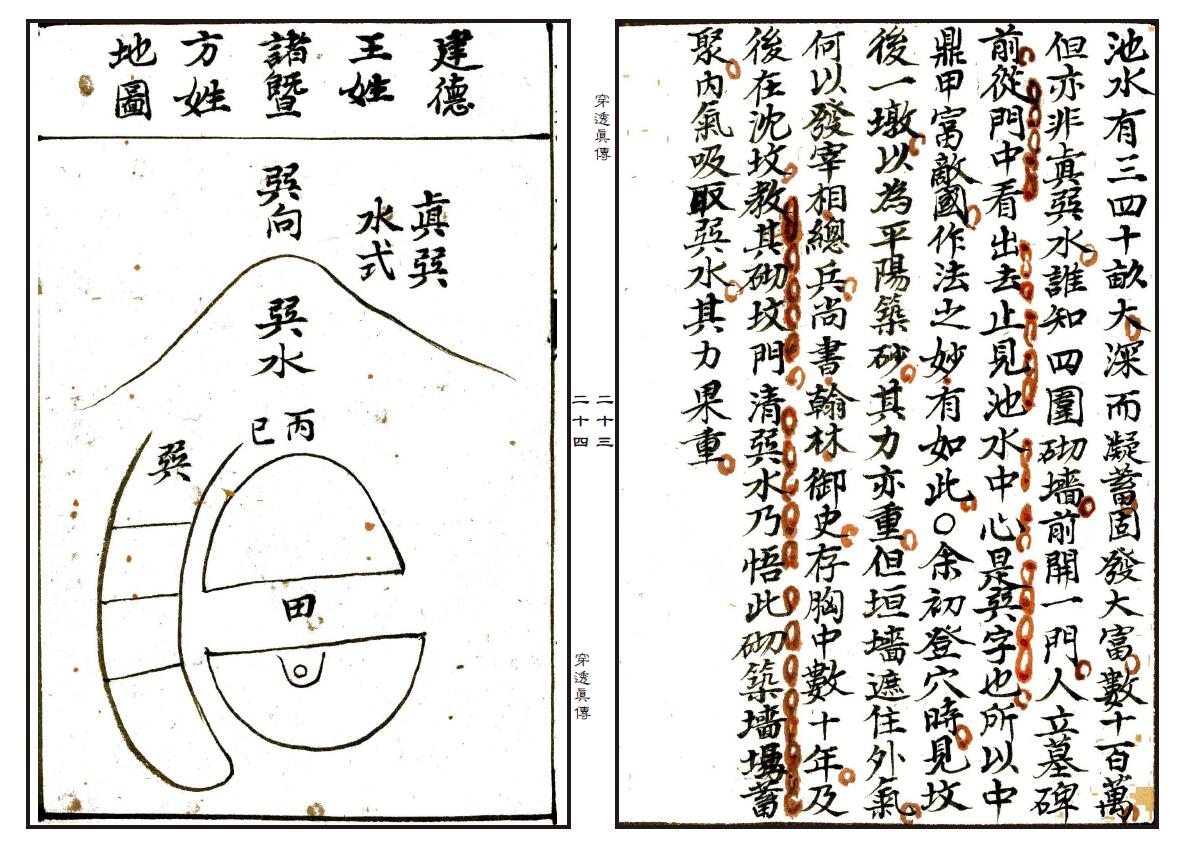 池水有三四十畝大深而凝蓄固發大富數十百萬
但亦非眞巽水誰知四圍砌墻前開一門人立墓碑
前從門中看出去止見池水中心是巽字也所以中
鼎甲富敵國作法之妙有如此○余初登穴時見坟
後一墩以為平陽築砂其力亦重但垣墻遮住外氣
何以發宰相總兵尚書翰林御史存胸中數十年及
後在沈坟教其砌坟門清巽水乃悟此砌築墻塲蓄
聚內氣吸取巽水其力果重
穿透眞傳
二十三
二十四
穿透眞傳
建德
王姓
諸暨
方姓
地圖
眞巽
水式
巽向
巽水
丙
巳
巽
田